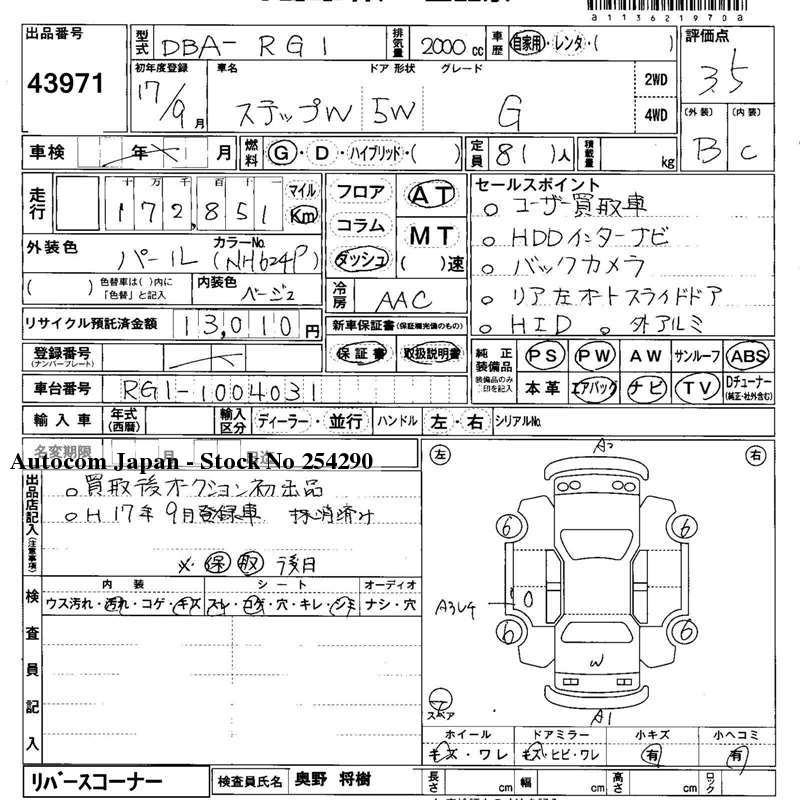 a113621970a
出品番号 型式 DBA- RG1 排気量 2000 cc 車歴 自家用・レンタ・( ) 評価点
43971 3.5
初年度登録 車名 ドア 形状 グレード 2WD
17/9月 ステップW 5W G 4WD
(外装) (内装)
B C
車検 年 月 燃料 G・D・ハイブリッド・( ) 定員 8( )人 積載量 kg
走行 十 万 千 百 十 一 マイル
172,851 Km
フロア AT
コラム MT
ダッシュ ( )速
セールスポイント
○ ユーザー買取車
○ HDDインターナビ
○ バックカメラ
○ リア左オートスライドドア
○ HID ○ 外アルミ
外装色 パール カラーNo. (NH624P)
( ) 色替車は( )内に「色替」と記入 内装色 ベージュ
冷房 AAC
リサイクル預託済金額 13,010円
新車保証書(保証継続のもの)
保証書 取扱説明書
登録番号
(ナンバープレート)
純正装備品 PS PW AW サンルーフ ABS
装備品のみ印を記入 本革 エアバッグ ナビ TV Dチューナー(純正・社外含む)
車台番号 RG1-1004031
輸入車 年式(西暦) 輸入区分 ディーラー・並行 ハンドル 左・右 シリアルNo.
名変期限 月
Autocom Japan - Stock No 254290
出品店記入(注意事項)
○ 買取後オークション初出品
○ H17年9月登録車 抹消済み
※ 保 取 後日
左 右
A2
6 6
A3レ4
6 6
W
スペア
A1
検査員記入
内装 シート オーディオ
ウス汚れ・汚れ・コゲ・キズ スレ・コゲ・穴・キレ・シミ ナシ・穴
ホイール ドアミラー 小キズ 小ヘコミ
キズ・ワレ キズ・ヒビ・ワレ 有 有
リバースコーナー 検査員氏名 奥野 将樹 長さ cm 幅 cm 高さ cm ロック